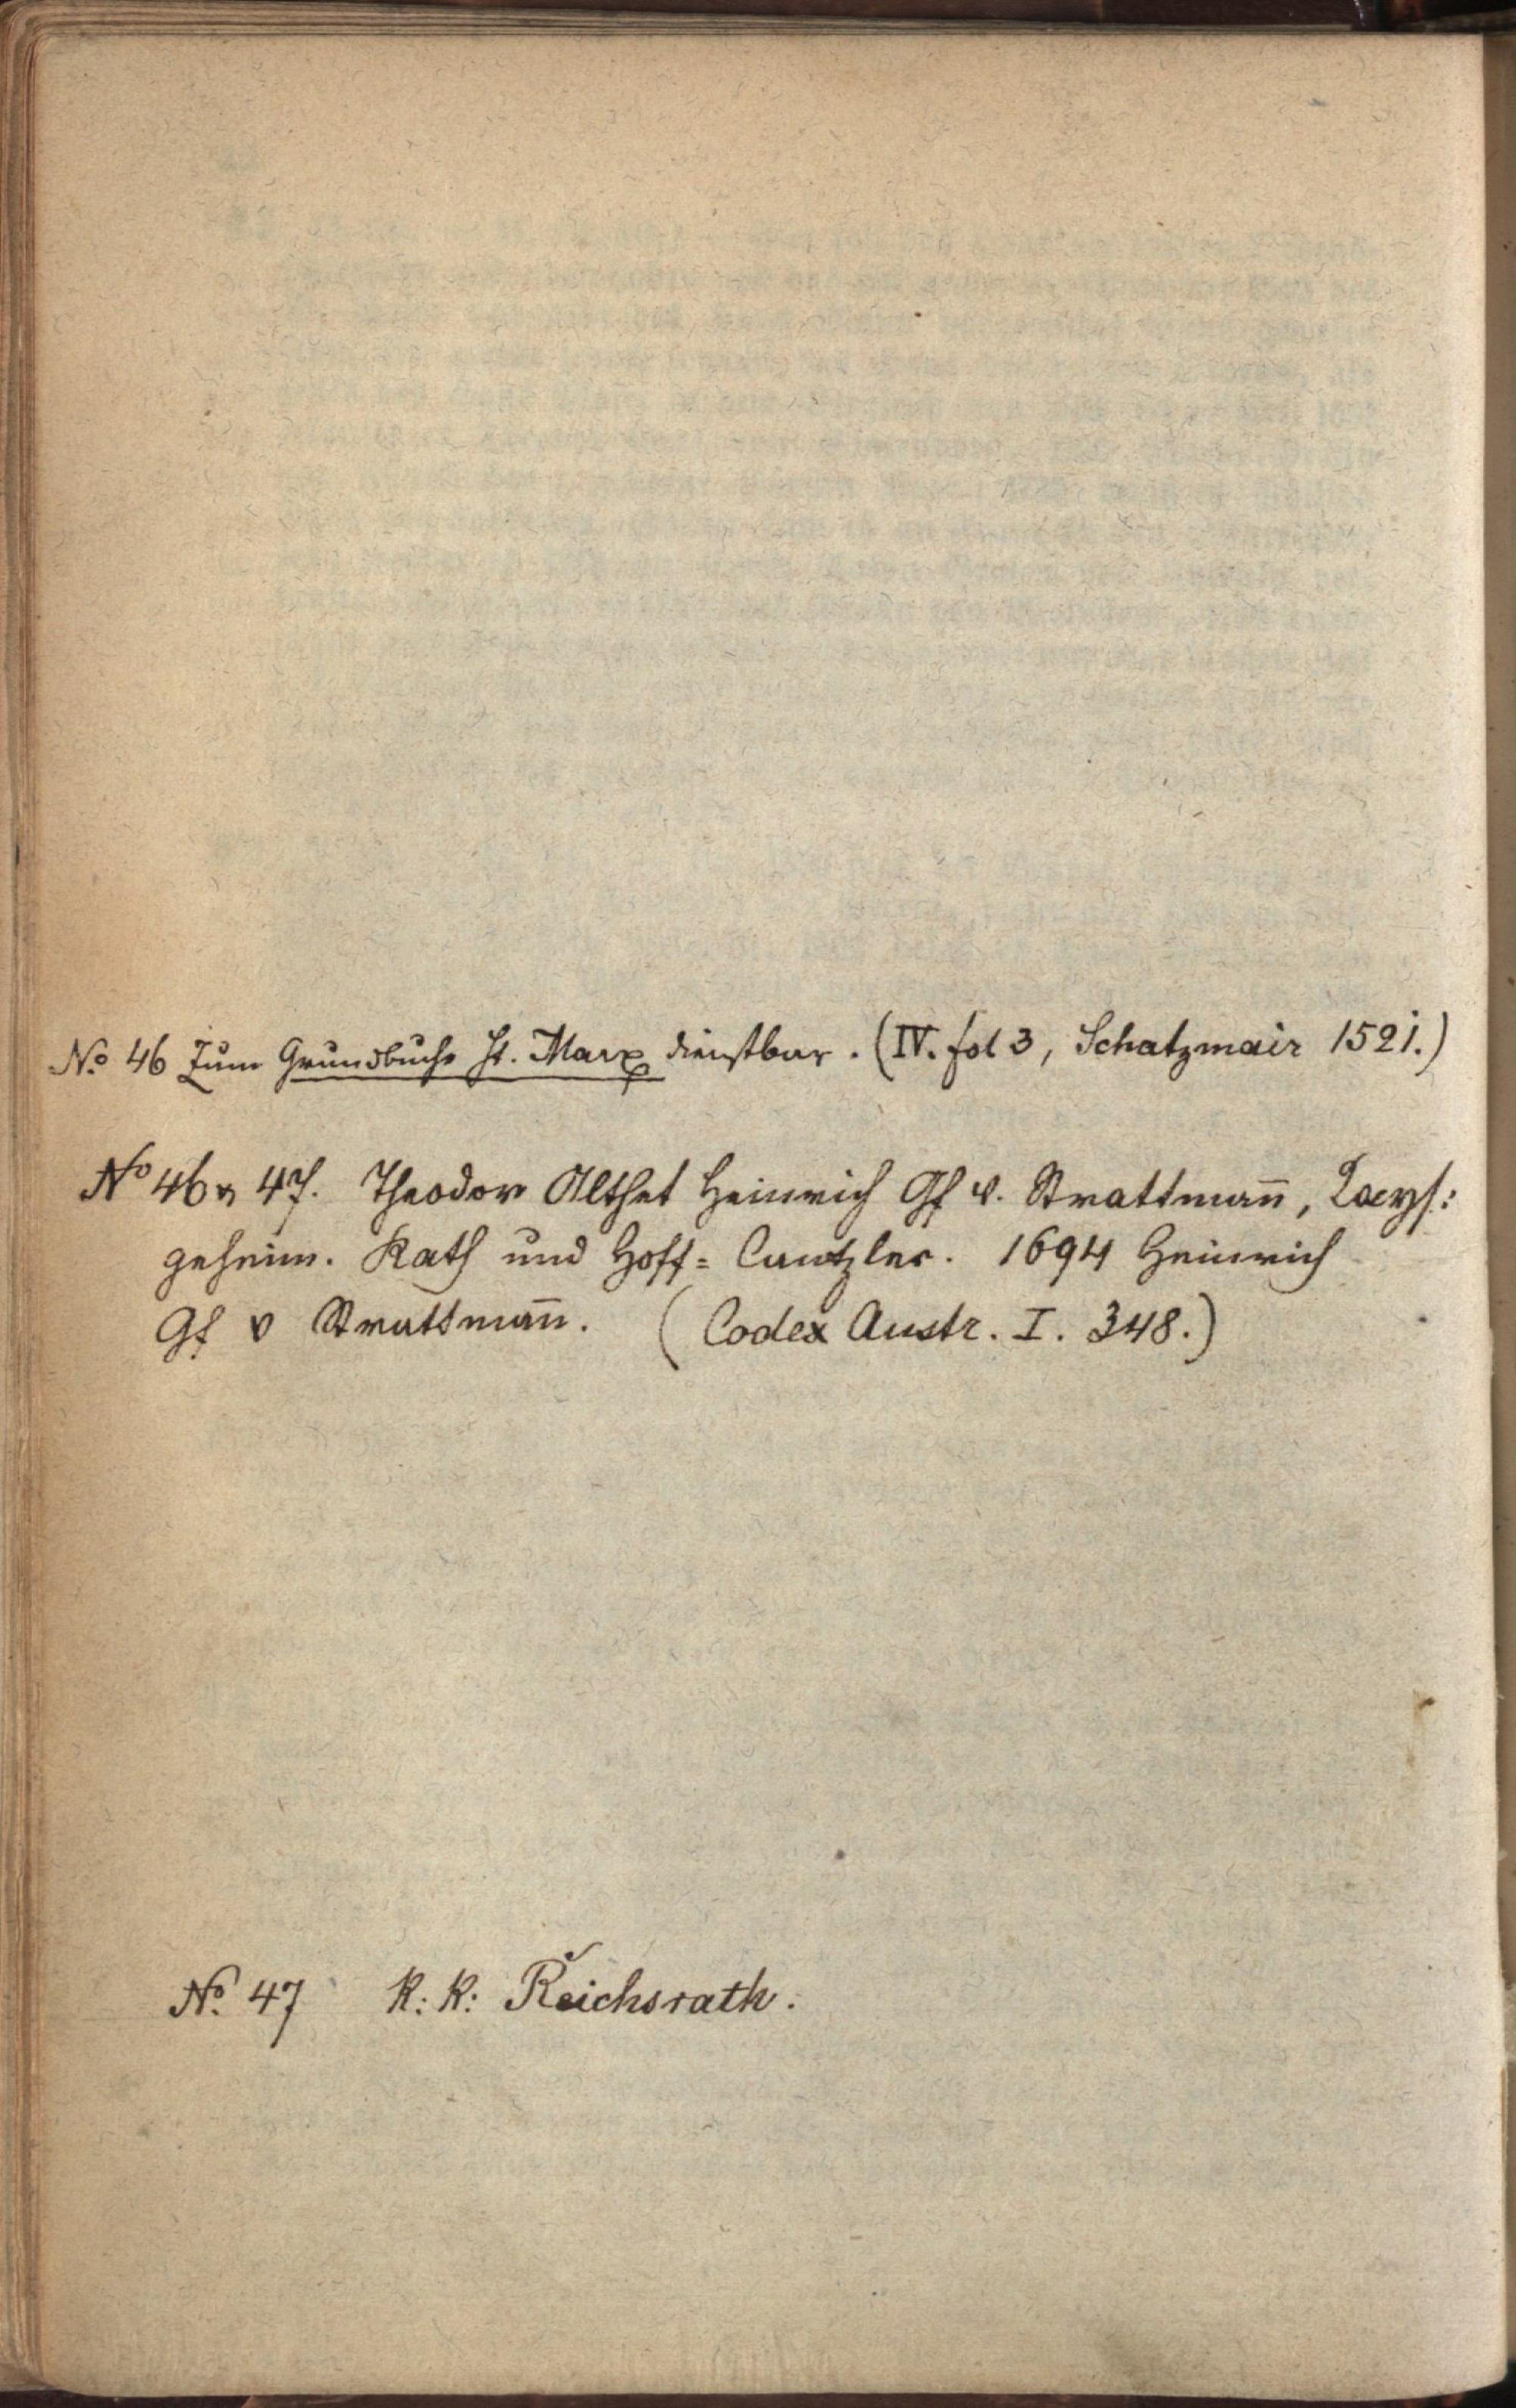 No 46 Zum Grundbuche St. Marx dienstbar. (IV. fol 3, Schatzmair 1521.)
No 46 & 47. Theodor Althet Heinrich Gf v. Strattmañ, Kays:
geheim. Rath und Hoff= Cantzler. 1694 Heinrich
Gf v Strattmañ. (Codex Austr. I. 348.)
No. 47 K: K: Reichsrath.